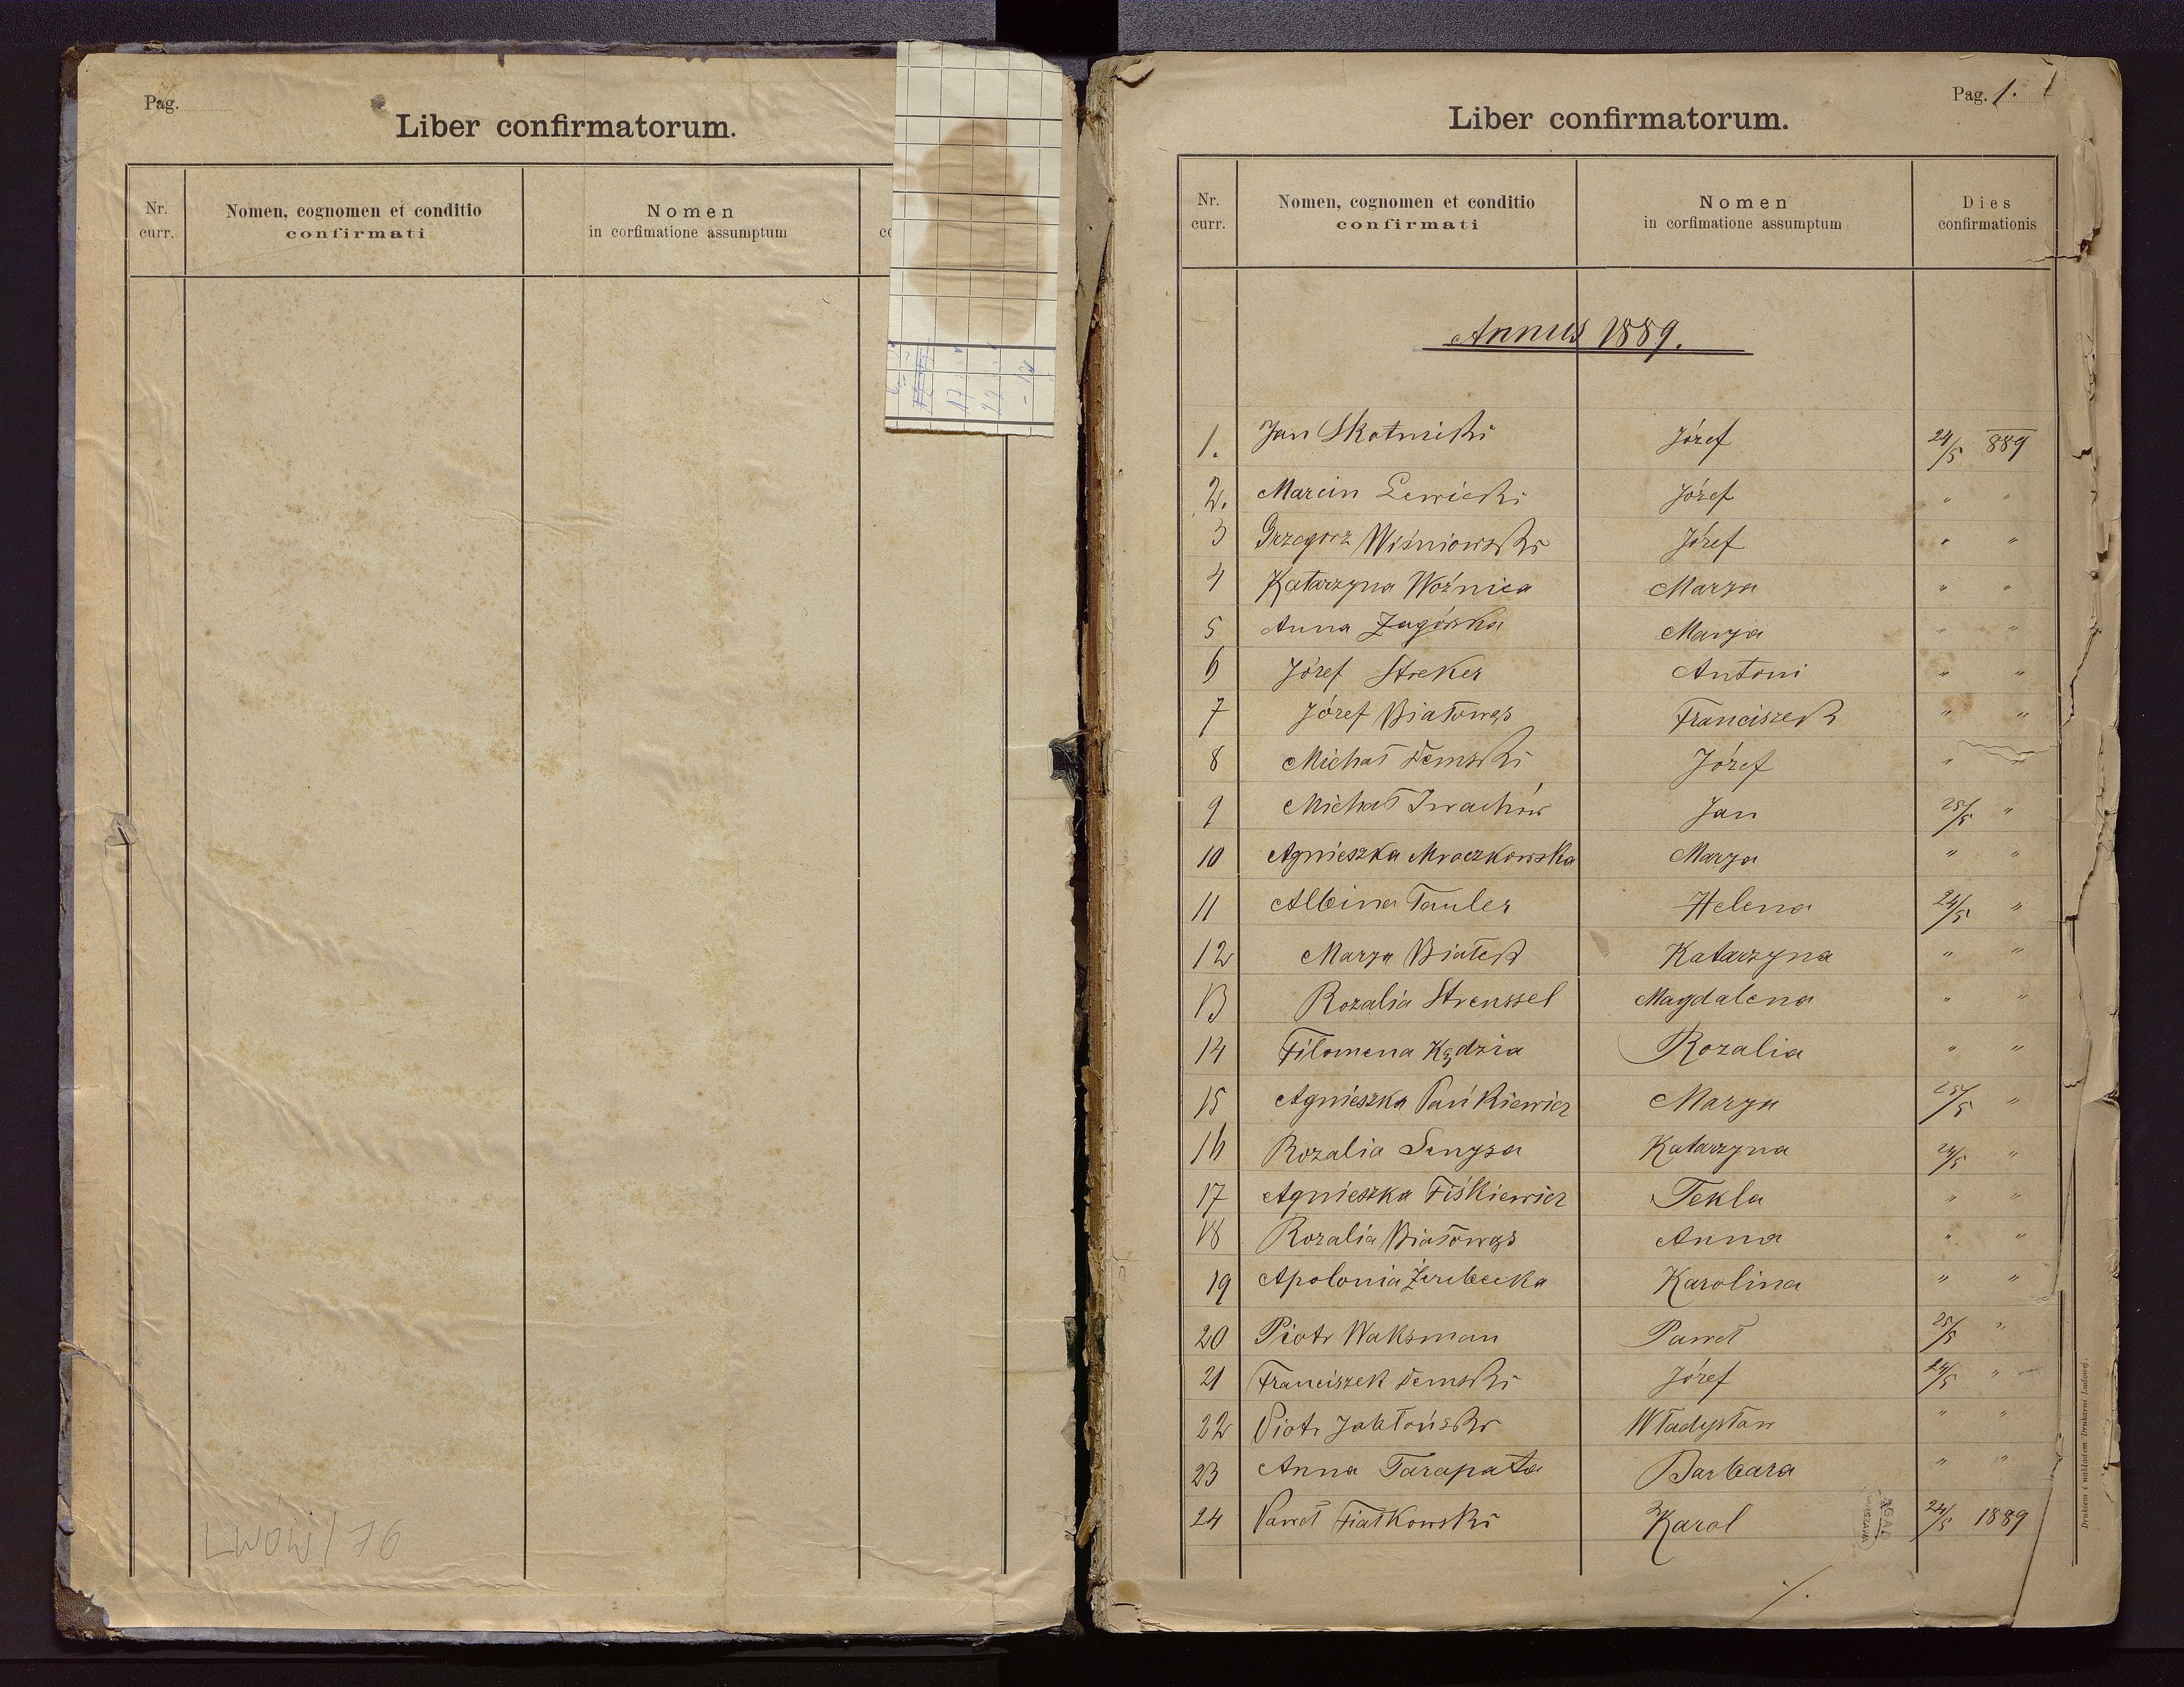 Pag.
Liber confirmatorum.
Nr. curr.
Nomen, cognomen et conditio
confirmati
Nomen
in corfimatione assumptum
LWÓW/76
Pag. 1.
Liber confirmatorum.
Nr. curr.
Nomen, cognomen et conditio
confirmati
Nomen
in corfimatione assumptum
Dies
confirmationis
Annus 1889.
1. Jan Skotnicki Józef 24/5 889
2. Marcin Lewicki Józef " "
3 Grzegorz Wiśniowski Józef " "
4 Katarzyna Woźnica Marya " "
5 Anna Zagórska Marya " "
6 Józef Streker Antoni " "
7 Józef Białowąs Franciszek " "
8 Michał Demski Józef " "
9 Michał Iwachów Jan 25/5 "
10 Agnieszka Mroczkowska Marya " "
11 Albina Tauler Helena 24/5 "
12 Marya Białek Katarzyna " "
13 Rozalia Streussel Magdalena " "
14 Filomena Kądzia Rozalia " "
15 Agnieszka Pańkiewicz Marya 25/5 "
16 Rozalia Katarzyna 24/5 "
17 Agnieszka Fiśkiewicz Tekla " "
18 Rozalia Białowąs Anna " "
19 Apolonia Żerebecka Karolina " "
20 Piotr Waksman Paweł 25/5 "
21 Franciszek Demski Józef 24/5 "
22 Piotr Jabłoński Władysław " "
23 Anna Tarapata Barbara " "
24 Paweł Fiałkowski Karol 24/5 1889
AGAD
WARSZAWA
Drukiem i nakładem Drukarni Ludowej.